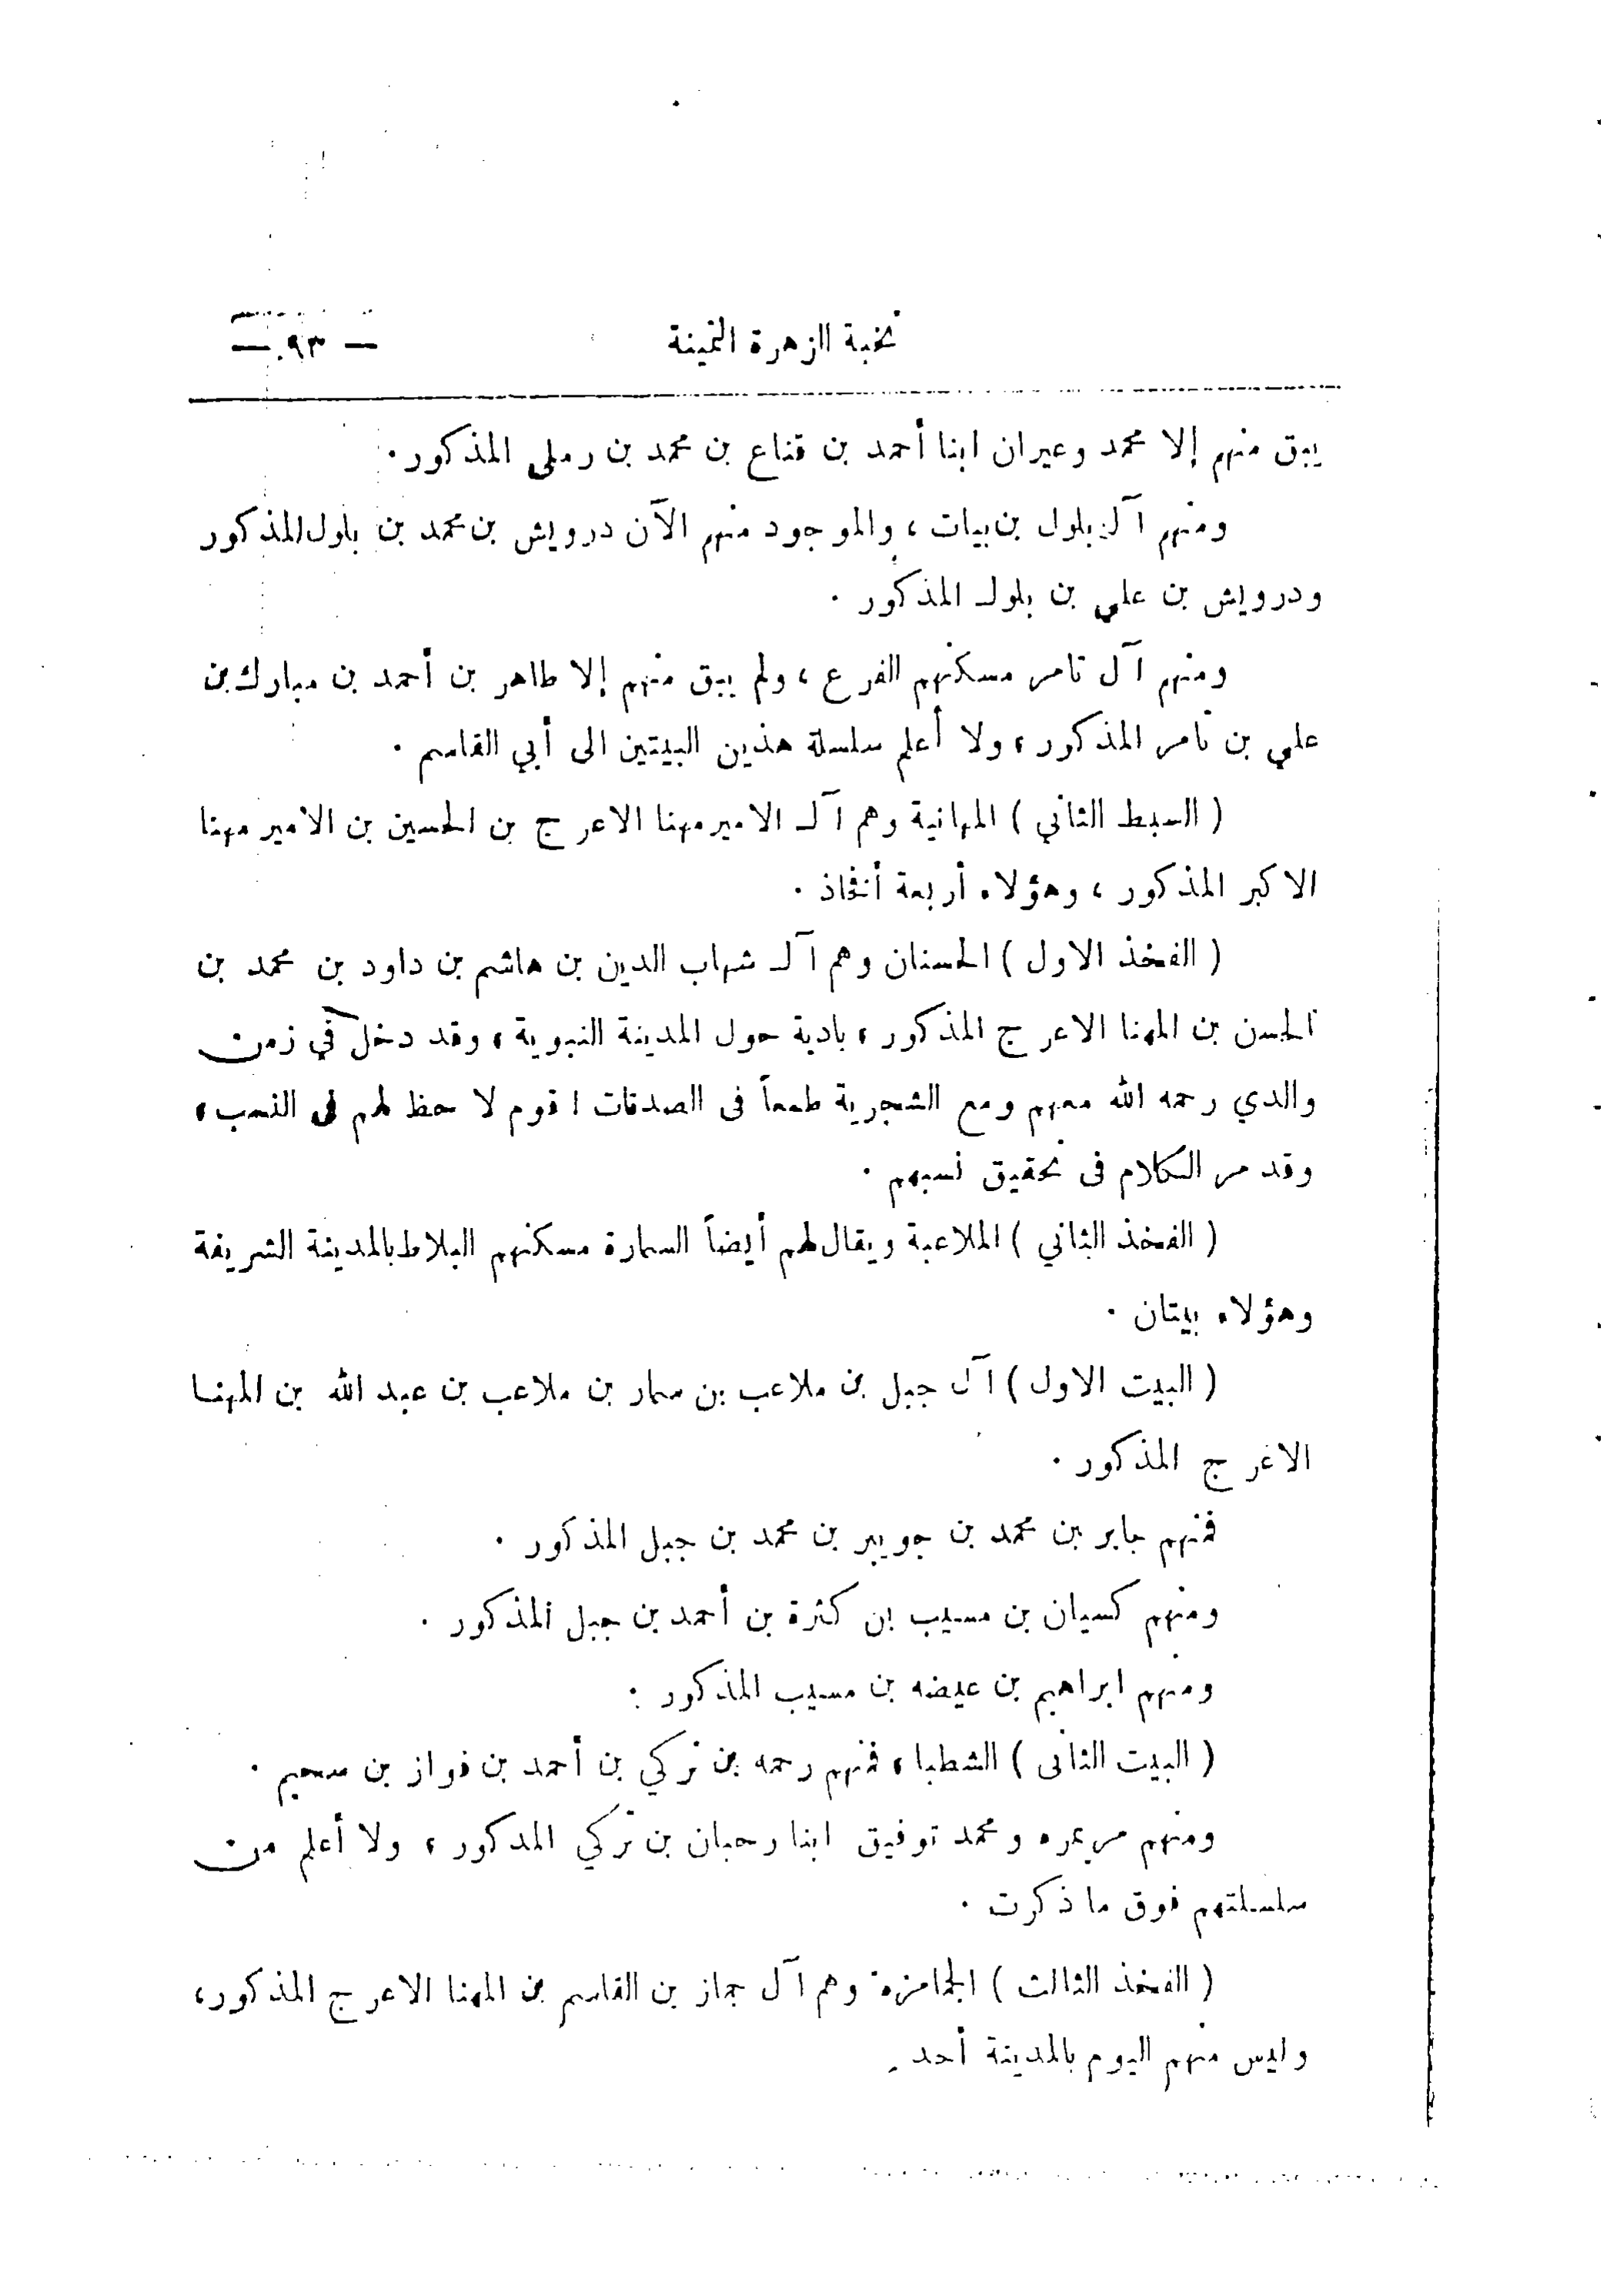 نخبة الزهرة الثمينة
— ٩٣ —
يبق منهم إلا محمد وعيران ابنا أحمد بن قناع بن محمد بن رملى المذكور .
ومنهم آل بلول بن بيات ، والموجود منهم الآن درويش بن محمد بن بلول المذكور
ودرويش بن علي بن بلول المذكور .
ومنهم آل تامر مسكنهم الفرع ، ولم يبق منهم إلا طاهر بن أحمد بن مبارك بن
علي بن تامر المذكور ، ولا أعلم سلسلة هذين البيتين الى أبي القاسم .
( السبط الثاني ) المهانية وهم آل الامير مهنا الاعرج بن الحسين بن الامير مهنا
الاكبر المذكور ، وهؤلاء أربعة أفخاذ .
( الفخذ الاول ) الحسنان وهم آل شهاب الدين بن هاشم بن داود بن محمد بن
الحسن بن المهنا الاعرج المذكور ، بادية حول المدينة النبوية ، وقد دخل في زمن
والدي رحمه الله معهم ومع الشجرية طمعاً فى الصدقات اقوم لا حظ لهم فى النسب ،
وقد مر الكلام فى تحقيق نسبهم .
( الفخذ الثاني ) الملاعبة ويقال لهم أيضاً السمارة مسكنهم البلاط بالمدينة الشريفة
وهؤلاء بيتان .
( البيت الاول ) آل جبل بن ملاعب بن سمار بن ملاعب بن عبد الله بن المهنا
الاعرج المذكور .
فمنهم جابر بن محمد بن جويبر بن محمد بن جبل المذكور .
ومنهم كسيان بن مسيب بن كثرة بن أحمد بن جبل المذكور .
ومنهم ابراهيم بن عيضه بن مسيب المذكور .
( البيت الثانى ) الشطبا ، فمنهم رحمه بن تركي بن أحمد بن فواز بن سحيم .
ومنهم مريعره ومحمد توفيق ابنا رحبان بن تركي المدكور ، ولا أعلم من
سلسلتهم فوق ما ذكرت .
( الفخذ الثالث ) الجمامزة وهم آل جماز بن القاسم بن المهنا الاعرج المذكور ،
وليس منهم اليوم بالمدينة أحد .